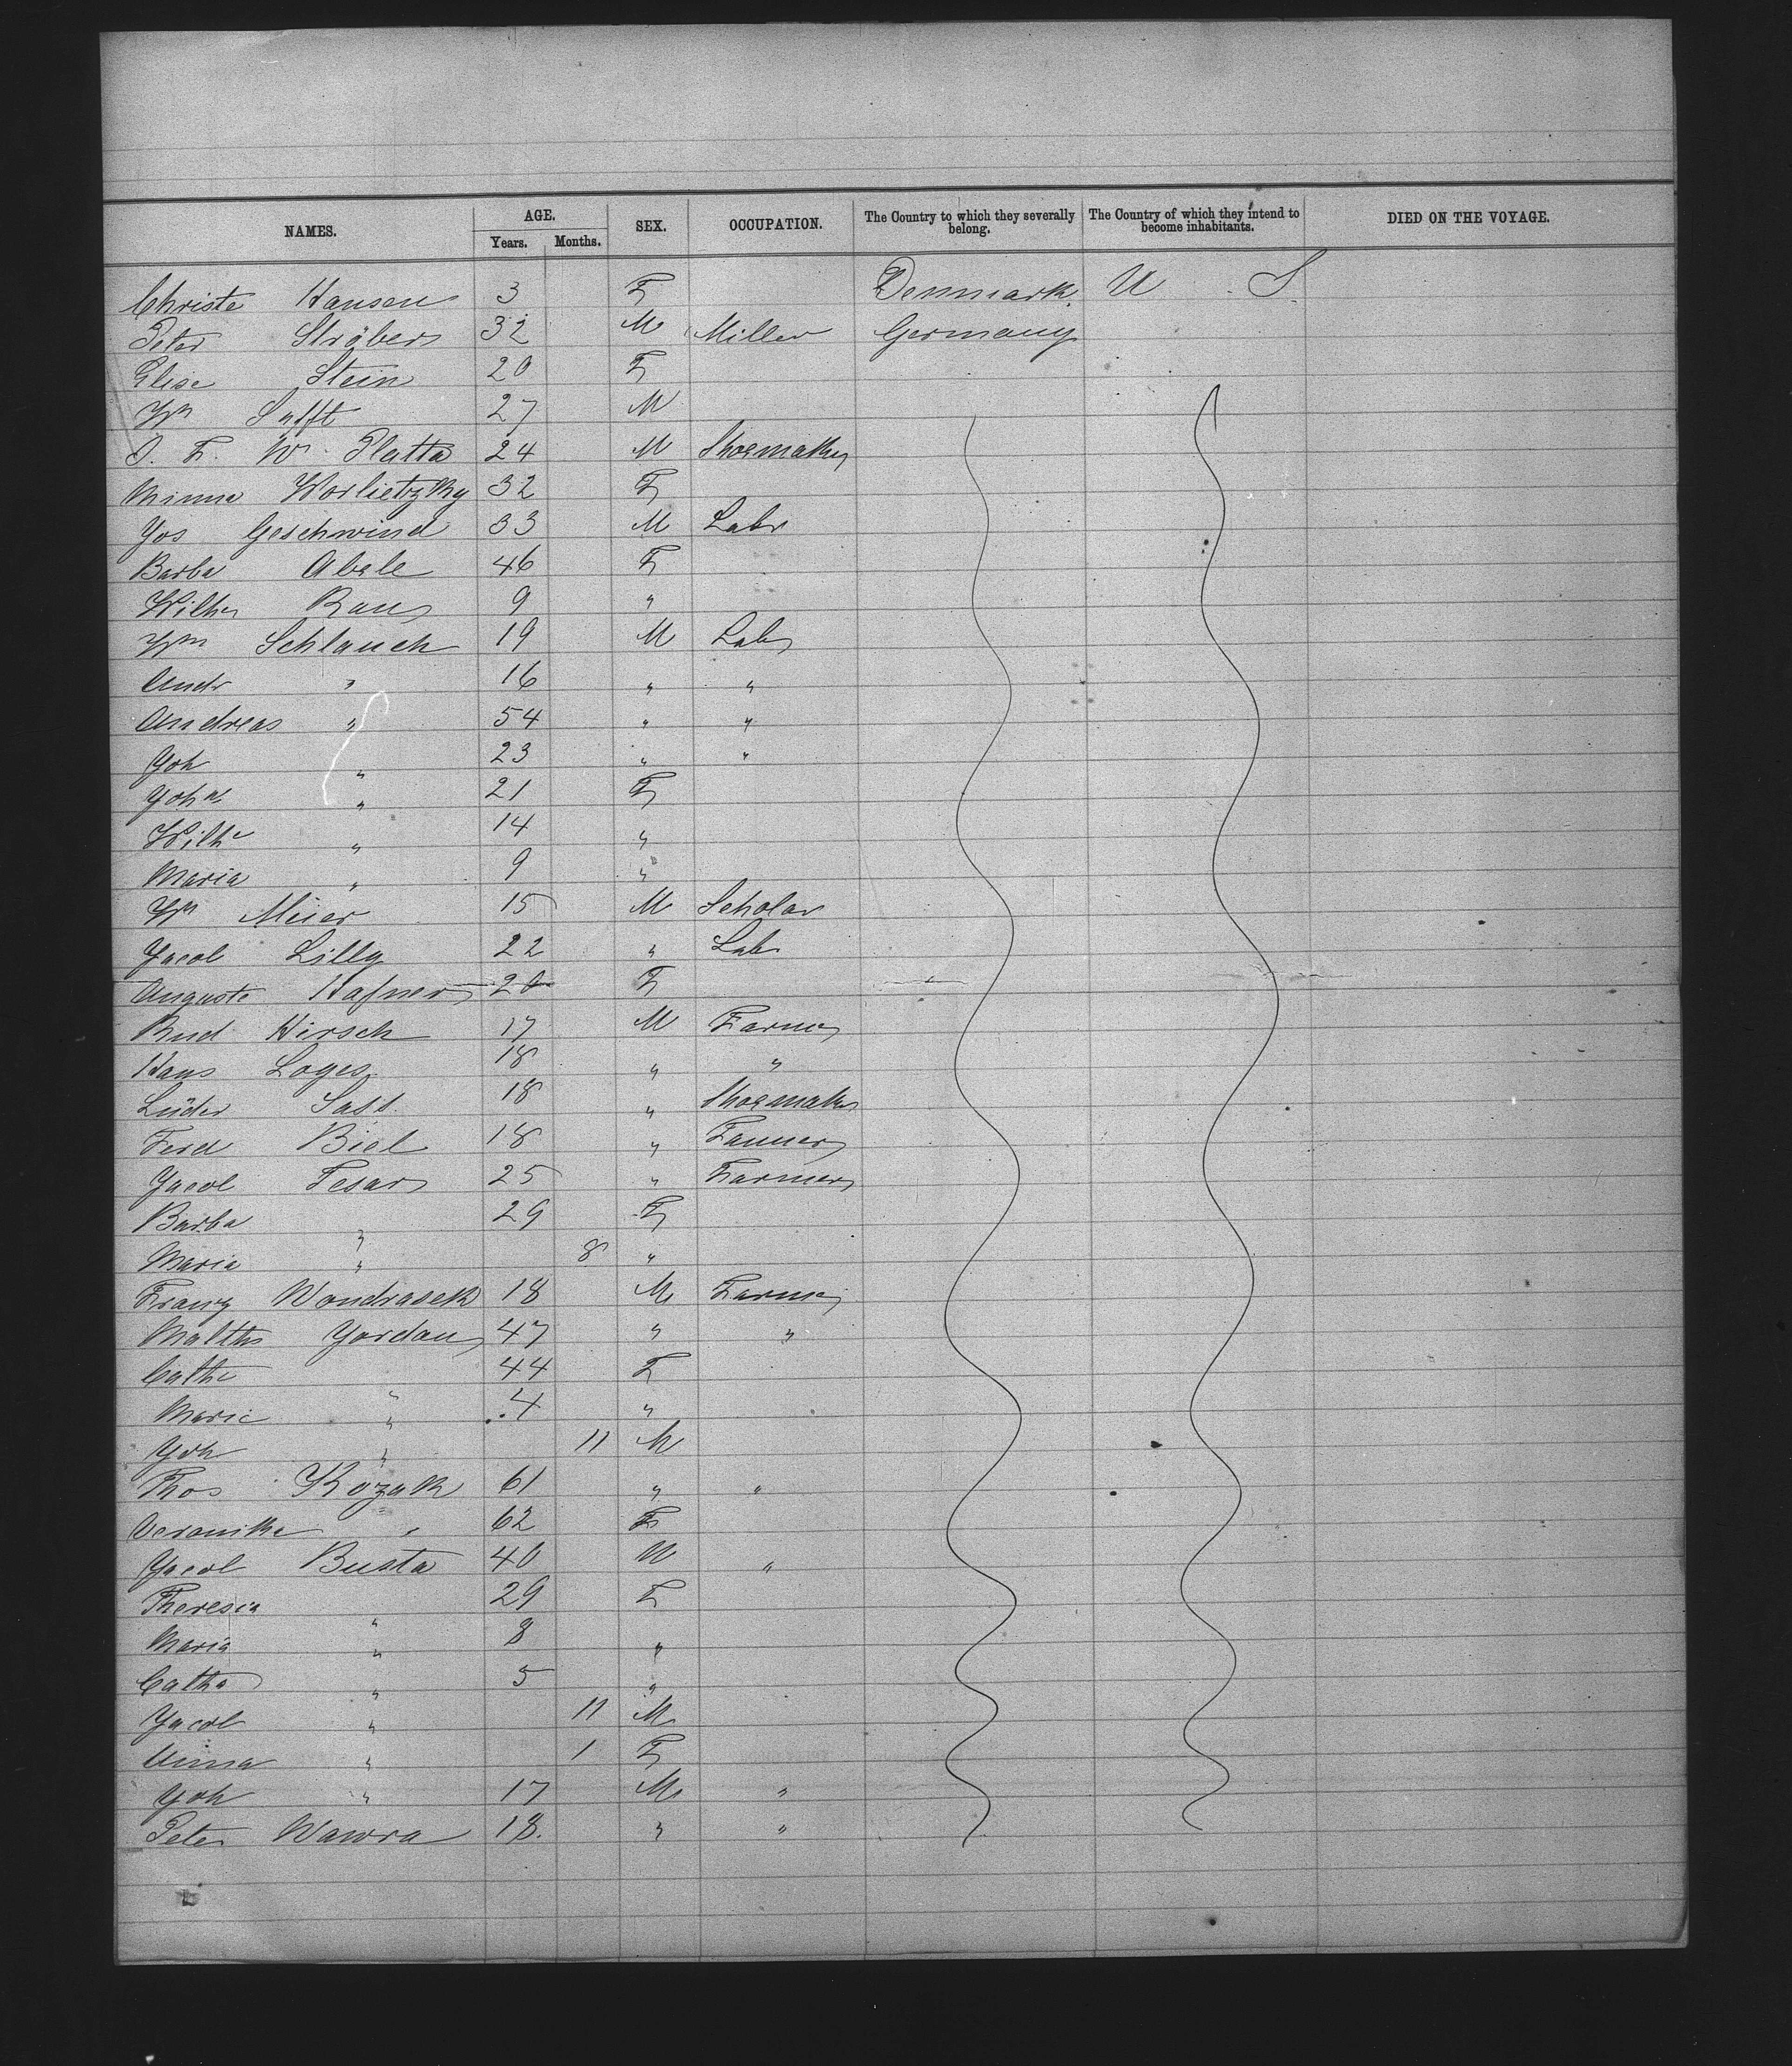 NAMES. AGE. SEX. OCCUPATION. The Country to which they severally belong. The Country of which they intend to become inhabitants. DIED ON THE VOYAGE.
Years. Months.
Christe Hansen 3 F Denmark U S
Peter Ströbers 32 M Miller Germany
Elise Stein 20 F
Wm 27 M
J. F. W. Platta 24 M Shoemaker
Minna Worlietzky 32 F
Jos Geschwind 33 M Labr
Barba Abele 46 F
Wilhe Rau 9 "
Wm Schlauch 19 M Labr
Andr " 16 " "
Andreas " 54 " "
Joh " 23 " "
Joha " 21 F
Wilhe " 14 "
Maria " 9 "
Wm Meier 15 M Scholar
Jacob Lilly 22 " Labr
Auguste Hafner 20 F
Rud Hirsch 17 M Farmer
Hans Loges 18 " "
Lüder Sass 18 " Shoemaker
Ferd Biel 18 " Tanner
Jacob Tesar 25 " Farmer
Barba " 29 F
Maria " 8 "
Franz Wondrasek 18 M Farmer
Matths Jordan 47 " "
Cathe " 44 F
Marie " 4 "
Joh " 11 M
Thos Kozak 61 " "
Veronika " 62 F
Jacob Busta 40 M "
Theresia " 29 F
Maria " 8 "
Catha " 5 "
Jacob " 11 M
Anna " 1 F
Joh " 17 M "
Peter Wawra 18. " "